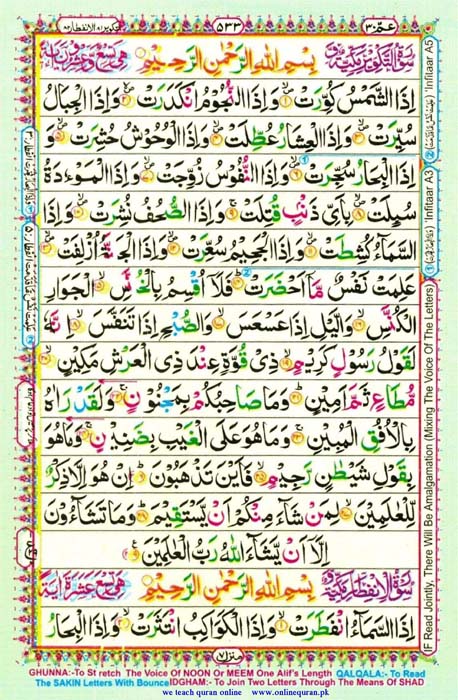 عمّ ٣٠
٥٣٣
التكوير ٨١ الانفطار ٨٢
سُوْرَةُ التَّكْوِيْرِ مَكِّيَّةٌ بِسْمِ اللهِ الرَّحْمٰنِ الرَّحِيْمِ وَّهِيَ تِسْعٌ وَّعِشْرُوْنَ اٰيَةً
اِذَا الشَّمْسُ كُوِّرَتْ ۝١ وَاِذَا النُّجُوْمُ انْكَدَرَتْ ۝٢ وَاِذَا الْجِبَالُ
سُيِّرَتْ ۝٣ وَاِذَا الْعِشَارُ عُطِّلَتْ ۝٤ وَاِذَا الْوُحُوْشُ حُشِرَتْ ۝٥ وَ
اِذَا الْبِحَارُ سُجِّرَتْ ۝٦ وَاِذَا النُّفُوْسُ زُوِّجَتْ ۝٧ وَاِذَا الْمَوْءٗدَةُ
سُئِلَتْ ۝٨ بِاَيِّ ذَنْۢبٍ قُتِلَتْ ۝٩ وَاِذَا الصُّحُفُ نُشِرَتْ ۝١٠ وَاِذَا
السَّمَآءُ كُشِطَتْ ۝١١ وَاِذَا الْجَحِيْمُ سُعِّرَتْ ۝١٢ وَاِذَا الْجَنَّةُ اُزْلِفَتْ ۝١٣
عَلِمَتْ نَفْسٌ مَّآ اَحْضَرَتْ ۝١٤ فَلَآ اُقْسِمُ بِالْخُنَّسِ ۝١٥ الْجَوَارِ
الْكُنَّسِ ۝١٦ وَالَّيْلِ اِذَا عَسْعَسَ ۝١٧ وَالصُّبْحِ اِذَا تَنَفَّسَ ۝١٨ اِنَّهٗ
لَقَوْلُ رَسُوْلٍ كَرِيْمٍ ۝١٩ ذِيْ قُوَّةٍ عِنْدَ ذِي الْعَرْشِ مَكِيْنٍ ۝٢٠
مُّطَاعٍ ثَمَّ اَمِيْنٍ ۝٢١ وَمَا صَاحِبُكُمْ بِمَجْنُوْنٍ ۝٢٢ وَلَقَدْ رَاٰهُ
بِالْاُفُقِ الْمُبِيْنِ ۝٢٣ وَمَا هُوَ عَلَى الْغَيْبِ بِضَنِيْنٍ ۝٢٤ وَمَا هُوَ
بِقَوْلِ شَيْطٰنٍ رَّجِيْمٍ ۝٢٥ فَاَيْنَ تَذْهَبُوْنَ ۝٢٦ اِنْ هُوَ اِلَّا ذِكْرٌ
لِّلْعٰلَمِيْنَ ۝٢٧ لِمَنْ شَآءَ مِنْكُمْ اَنْ يَّسْتَقِيْمَ ۝٢٨ وَمَا تَشَآءُوْنَ
اِلَّآ اَنْ يَّشَآءَ اللهُ رَبُّ الْعٰلَمِيْنَ ۝٢٩
سُوْرَةُ الْاِنْفِطَارِ مَكِّيَّةٌ بِسْمِ اللهِ الرَّحْمٰنِ الرَّحِيْمِ وَّهِيَ تِسْعَ عَشْرَةَ اٰيَةً
اِذَا السَّمَآءُ انْفَطَرَتْ ۝١ وَاِذَا الْكَوَاكِبُ انْتَثَرَتْ ۝٢ وَاِذَا الْبِحَارُ
منزل ٧
IF Read Jointly, There Will Be Amalgamation (Mixing The Voice Of The Letters) ① 'Infitaar A3 ② 'Infitaar A5
GHUNNA:-To St retch The Voice Of NOON Or MEEM One Alif's Length QALQALA:- To Read
The SAKIN Letters With Bounce IDGHAM:- To Join Two Letters Through The Means Of SHAD
we teach quran online www.onlinequran.pk